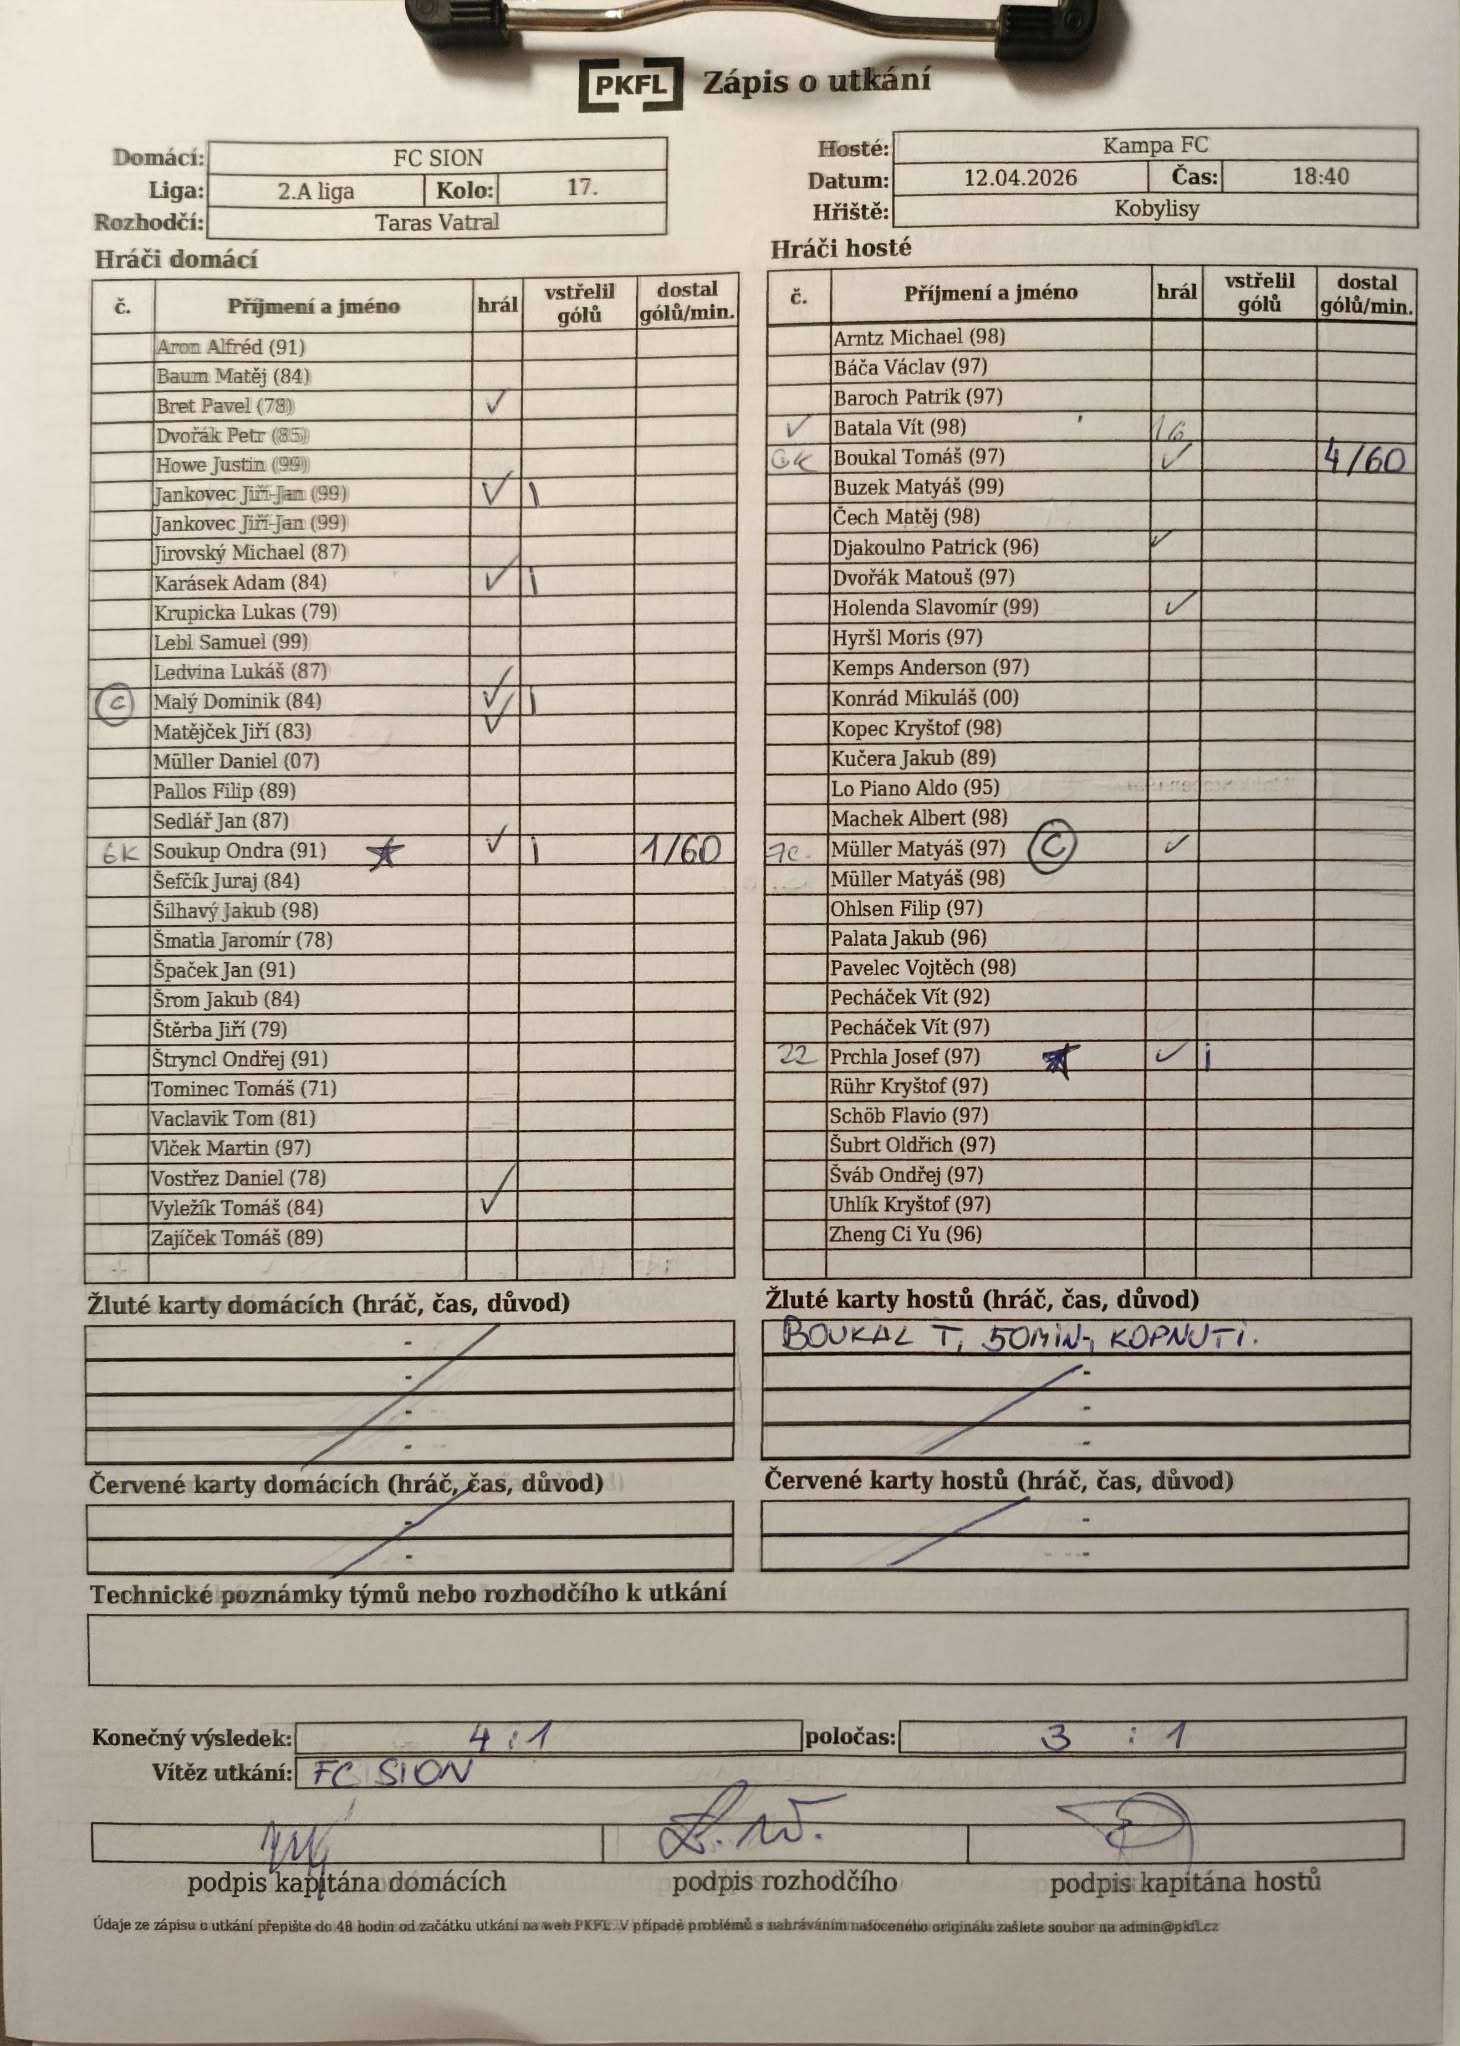 PKFL Zápis o utkání
Domácí: FC SION
Liga: 2.A liga Kolo: 17.
Rozhodčí: Taras Vatral
Hosté: Kampa FC
Datum: 12.04.2026 Čas: 18:40
Hřiště: Kobylisy
Hráči domácí
č. Příjmení a jméno hrál vstřelil gólů dostal gólů/min.
Aron Alfréd (91)
Baum Matěj (84)
Bret Pavel (78) ✓
Dvořák Petr (85)
Howe Justin (99)
Jankovec Jiří-Jan (99) ✓ I
Jankovec Jiří-Jan (99)
Jirovský Michael (87)
Karásek Adam (84) ✓ I
Krupicka Lukas (79)
Lebl Samuel (99)
Ledvina Lukáš (87) ✓
C Malý Dominik (84) ✓ I
Matějček Jiří (83) ✓
Müller Daniel (07)
Pallos Filip (89)
Sedlář Jan (87)
GK Soukup Ondra (91) ★ ✓ I 1/60
Šefčík Juraj (84)
Šilhavý Jakub (98)
Šmatla Jaromír (78)
Špaček Jan (91)
Šrom Jakub (84)
Štěrba Jiří (79)
Štryncl Ondřej (91)
Tominec Tomáš (71)
Vaclavik Tom (81)
Vlček Martin (97)
Vostřez Daniel (78)
Vyležík Tomáš (84) ✓
Zajíček Tomáš (89)
Hráči hosté
č. Příjmení a jméno hrál vstřelil gólů dostal gólů/min.
Arntz Michael (98)
Báča Václav (97)
Baroch Patrik (97)
✓ Batala Vít (98) 16
GK Boukal Tomáš (97) ✓ 4/60
Buzek Matyáš (99)
Čech Matěj (98)
Djakoulno Patrick (96) ✓
Dvořák Matouš (97)
Holenda Slavomír (99) ✓
Hyršl Moris (97)
Kemps Anderson (97)
Konrád Mikuláš (00)
Kopec Kryštof (98)
Kučera Jakub (89)
Lo Piano Aldo (95)
Machek Albert (98)
Müller Matyáš (97) C ✓
Müller Matyáš (98)
Ohlsen Filip (97)
Palata Jakub (96)
Pavelec Vojtěch (98)
Pecháček Vít (92)
Pecháček Vít (97)
22 Prchla Josef (97) ★ ✓ I
Rühr Kryštof (97)
Schöb Flavio (97)
Šubrt Oldřich (97)
Šváb Ondřej (97)
Uhlík Kryštof (97)
Zheng Ci Yu (96)
Žluté karty domácích (hráč, čas, důvod)
-
-
-
-
Žluté karty hostů (hráč, čas, důvod)
BOUKAL T, 50MIN, KOPNUTI.
-
-
-
Červené karty domácích (hráč, čas, důvod)
-
-
Červené karty hostů (hráč, čas, důvod)
-
-
Technické poznámky týmů nebo rozhodčího k utkání
Konečný výsledek: 4:1 poločas: 3 : 1
Vítěz utkání: FC SION
podpis kapitána domácích podpis rozhodčího podpis kapitána hostů
Údaje ze zápisu o utkání přepište do 48 hodin od začátku utkání na web PKFL. V případě problémů s nahráváním nafoceného originálu zašlete soubor na admin@pkfl.cz